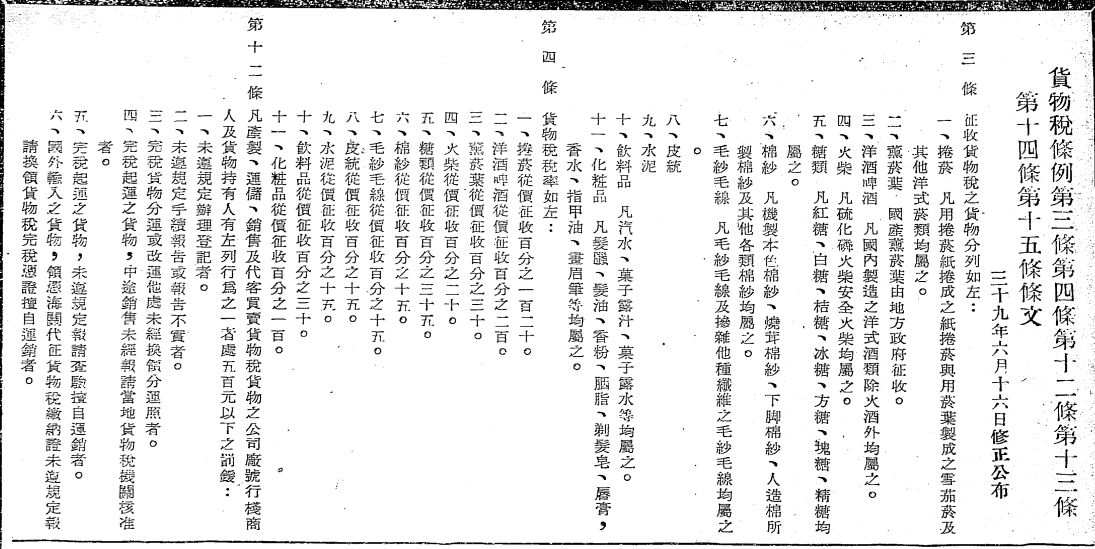 貨物稅條例第三條第四條第十二條第十三條
第十四條第十五條條文
三十九年六月十六日修正公布
第三條　征收貨物稅之貨物分列如左：
一、捲菸　凡用捲菸紙捲成之紙捲菸與用菸葉製成之雪茄菸及
其他洋式菸類均屬之。
二、薰菸葉　國產薰菸葉由地方政府征收。
三、洋酒啤酒　凡國內製造之洋式酒類除火酒外均屬之。
四、火柴　凡硫化磷火柴安全火柴均屬之。
五、糖類　凡紅糖、白糖、桔糖、冰糖、方糖、塊糖、精糖均
屬之。
六、棉紗　凡機製本色棉紗、燒茸棉紗、下脚棉紗、人造棉所
製棉紗及其他各類棉紗均屬之。
七、毛紗毛線　凡毛紗毛線及摻雜他種纖維之毛紗毛線均屬之
。
八、皮統
九、水泥
十、飲料品　凡汽水、菓子露汁、菓子露水等均屬之。
十一、化粧品　凡髮臘、髮油、香粉、胭脂、剃髮皂、唇膏，
香水、指甲油、畫眉筆等均屬之。
第四條　貨物稅稅率如左：
一、捲菸從價征收百分之一百二十。
二、洋酒啤酒從價征收百分之二百。
三、薰菸葉從價征收百分之三十。
四、火柴從價征收百分之二十。
五、糖類從價征收百分之三十五。
六、棉紗從價征收百分之十五。
七、毛紗毛線從價征收百分之十五。
八、皮統從價征收百分之十五。
九、水泥從價征收百分之十五。
十、飲料品從價征收百分之三十。
十一、化粧品從價征收百分之一百。
第十二條　凡產製、運儲、銷售及代客買賣貨物稅貨物之公司廠號行棧商
人及貨物持有人有左列行爲之一者處五百元以下之罰鍰：
一、未遵規定辦理登記者。
二、未遵規定手續報告或報告不實者。
三、完稅貨物分運或改運他處未經換領分運照者。
四、完稅起運之貨物，中途銷售未經報請當地貨物稅機關核准
者。
五、完稅起運之貨物，未遵規定報請查驗擅自運銷者。
六、國外輸入之貨物，領憑海關代征貨物稅繳納證未遵規定報
請換領貨物稅完稅憑證擅自運銷者。